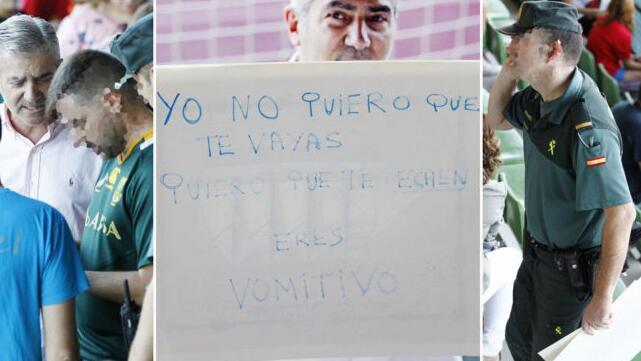 YO NO QUIERO QUE
TE VAYAS
QUIERO QUE TE ECHEN
ERES
VOMITIVO